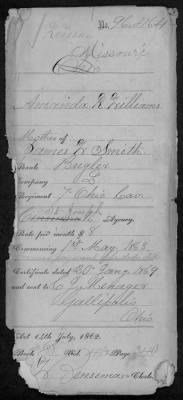 No. 96,164
Reissue
Missouri
Ohio
Amerinda R Williams
Mother of
James W. Smith
Rank Bugler
Company L
Regiment 7 Ohio Cav
St Louis
Cincinnati Agency.
Rate per month $ 8
Commencing 1st May, 1863
Certificate dated 20 Jany. 1869
and sent to C. J. Menager
Gallipolis
Ohio
Act 14th July, 1862.
Book Vol. Page
Denseman Clerk.